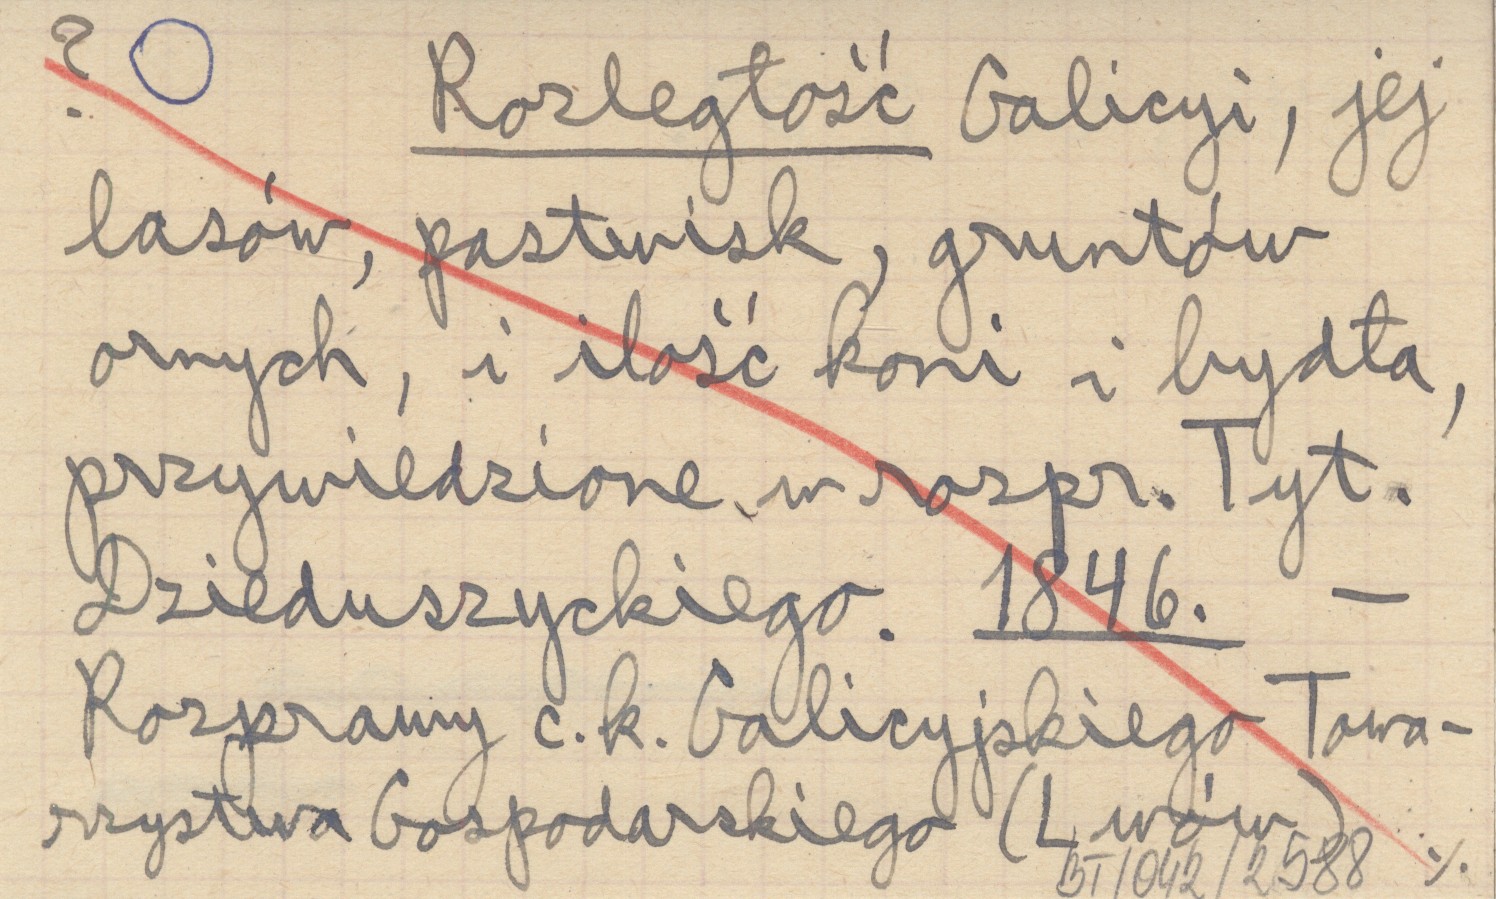 ?
Rozległość Galicyi, jej
lasów, pastwisk, gruntów
ornych, i ilość koni i bydła,
przywiedzione w rozpr. Tyt.
Dzieduszyckiego. 1846. —
Rozprawy c.k. Galicyjskiego Towa-
rzystwa Gospodarskiego (Lwów)
BT/042/2588 ./.